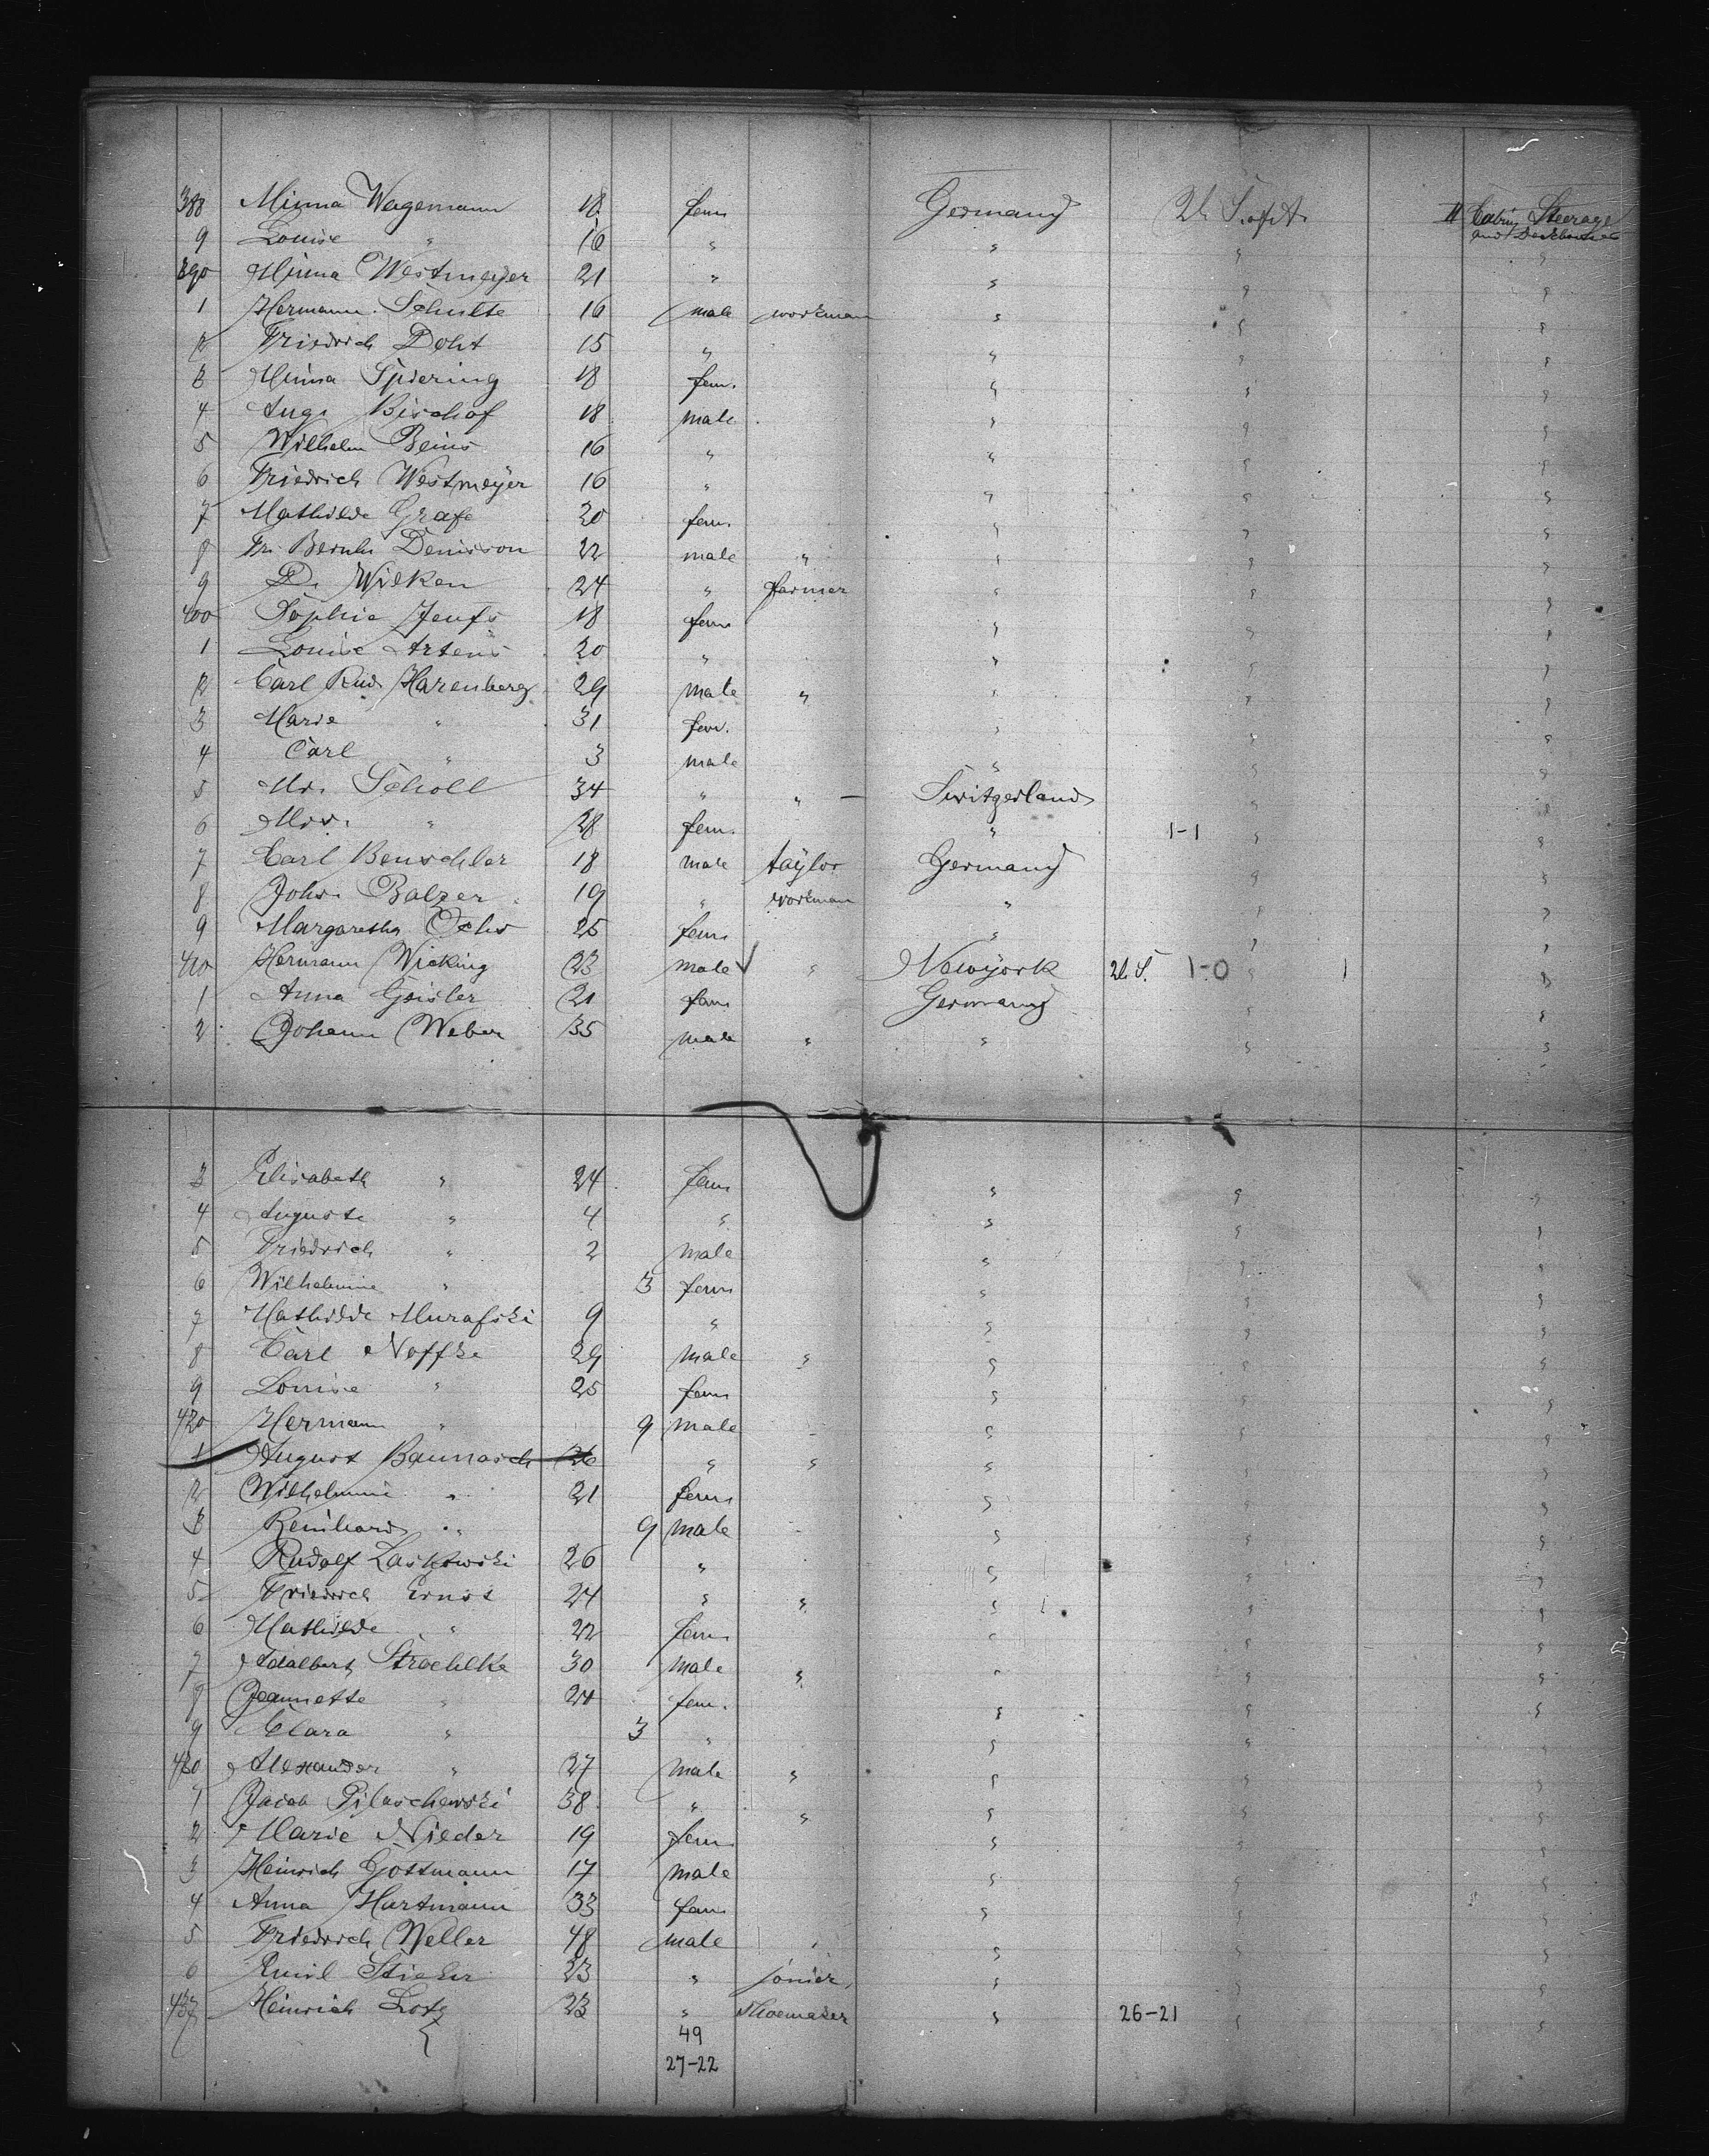 388 Minna Wagemann 18 fem Germany II Cabin, Steerage
9 Louise " 16 " " " and Deckhouse
390 Minna Westmeyer 21 " " " "
1 Hermann Schulte 16 male workman " " "
2 Friedrich Doht 15 " " " "
3 Minna Spiering 18 fem. " " "
4 Aug. Bischof 18 male " " "
5 Wilhelm Beins 16 " " " "
6 Friedrich Westmeyer 16 " " " "
7 Mathilde Grafe 20 fem " " "
8 Fr. Bernh. Denisson 22 male " " " "
9 D. Wilken 24 " farmer " " "
400 Sophie 18 fem " " "
1 Louise 20 " " " "
2 Carl Rud. Harenberg 29 male " " " "
3 Marie " 31 fem. " " "
4 Carl " 3 male " " "
5 Mr. Scholl 34 " " — Switzerland " "
6 Mrs. " 28 fem. " 1-1 " "
7 Carl Benschler 18 male taylor Germany " "
8 Johs. Balzer 19 " workman " " "
9 Margaretha Ochs 25 fem " " "
410 Hermann Wicking 23 male " Newyork 1-0 " 1 "
1 Anna Geisler 21 fem Germany " "
2 Johann Weber 35 male " " " "
3 Elisabeth " 24 fem " " "
4 Auguste " 4 " " " "
5 Friedrich " 2 male " " "
6 Wilhelmine " 3 fem " " "
7 Mathilde Murafski 9 " " " "
8 Carl Noffke 29 male " " " "
9 Louise " 25 fem " " "
420 Hermann " 9 male " " "
1 August Baumasch 26 " " " " "
2 Wilhelmine " 21 fem " " "
3 Reinhard " 9 male " " "
4 Rudolf Laskowski 26 " " " "
5 Friedrich Ernst 24 " " " " "
6 Mathilde " 22 fem " " "
7 Adalbert Stroehlke 30 male " " " "
8 Jeannette " 24 fem. " " "
9 Clara " 3 " " " "
430 Alexander " 27 male " " " "
1 Jacob Pilaschewski 38 " " " " "
2 Marie Nieder 19 fem " " "
3 Heinrich Gottmann 17 male " " "
4 Anna Hartmann 33 fem " " "
5 Friedrich Weller 48 male " " " "
6 Emil 23 " jonier " " "
437 Heinrich Lotz 23 " Shoemaker " 26-21 " "
49
27-22